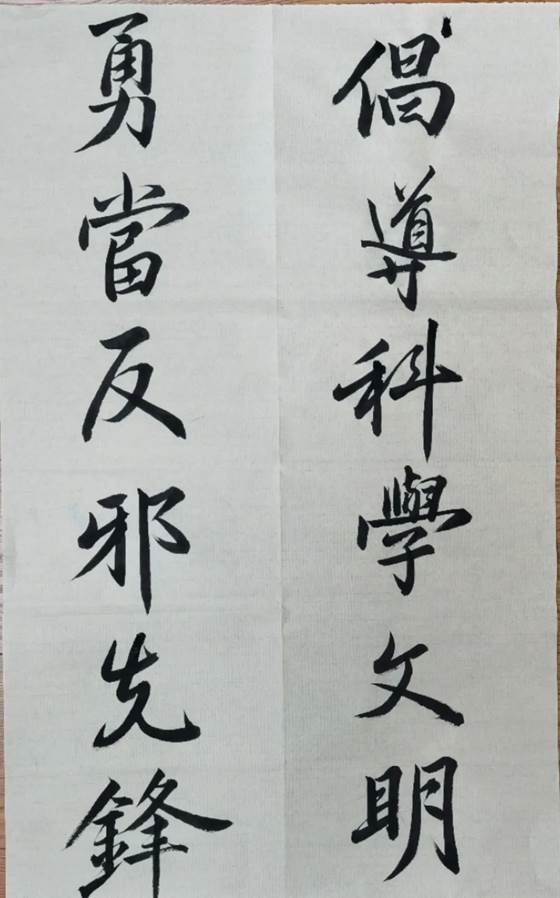 倡導科學文明
勇當反邪先鋒